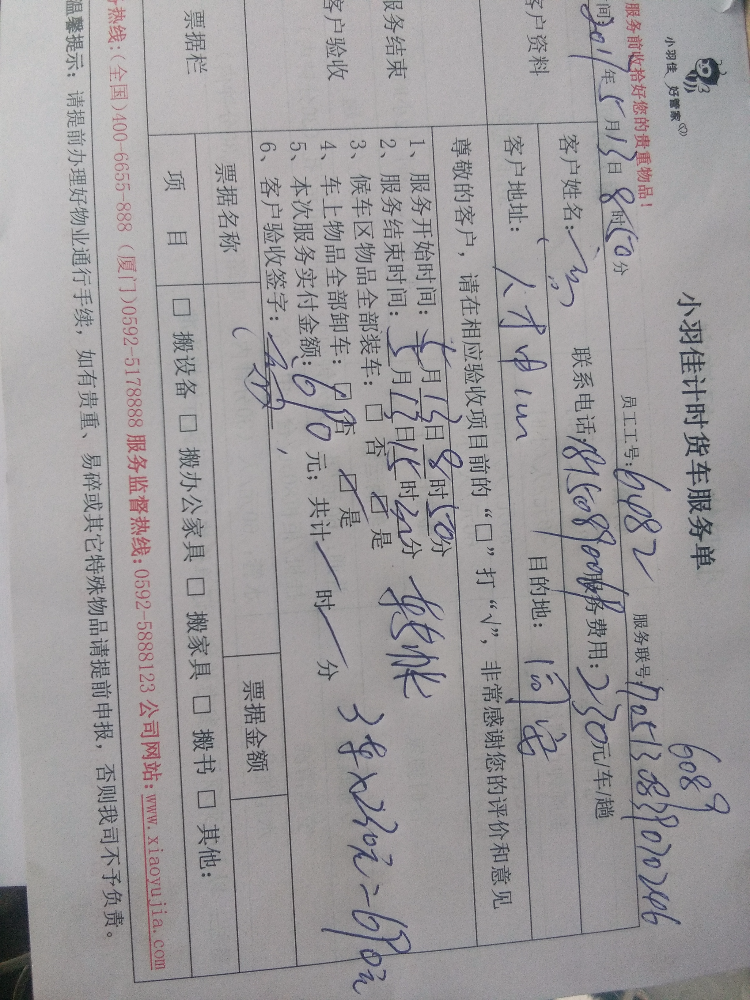 小羽佳 好管家
小羽佳计时货车服务单
6089
服务前收拾好您的贵重物品！
员工工号: 6082 服务联号:
年5月13日8时50分
客户资料
客户姓名: 联系电话: 服务费用: 230元/车/趟
客户地址: 人才中心 目的地: 同安
尊敬的客户，请在相应验收项目前的“□”打“√”，非常感谢您的评价和意见
服务结束
客户验收
1、服务开始时间: 5月13日8时50分
2、服务结束时间: 5月13日15时分 转账
3、候车区物品全部装车: □ 否 ☑ 是
4、车上物品全部卸车: □ 否 ☑ 是
5、本次服务实付金额: 690元; 共计/时/分 3车×230元=690元
6、客户验收签字:
票据栏
票据名称 票据金额
项 目 □ 搬设备 □ 搬办公家具 □ 搬家具 □ 搬书 □ 其他:
务热线:(全国)400-6655-888 (厦门)0592-5178888 服务监督热线:0592-5888123 公司网站:www.xiaoyujia.com
温馨提示: 请提前办理好物业通行手续，如有贵重、易碎或其它特殊物品请提前申报，否则我司不予负责。